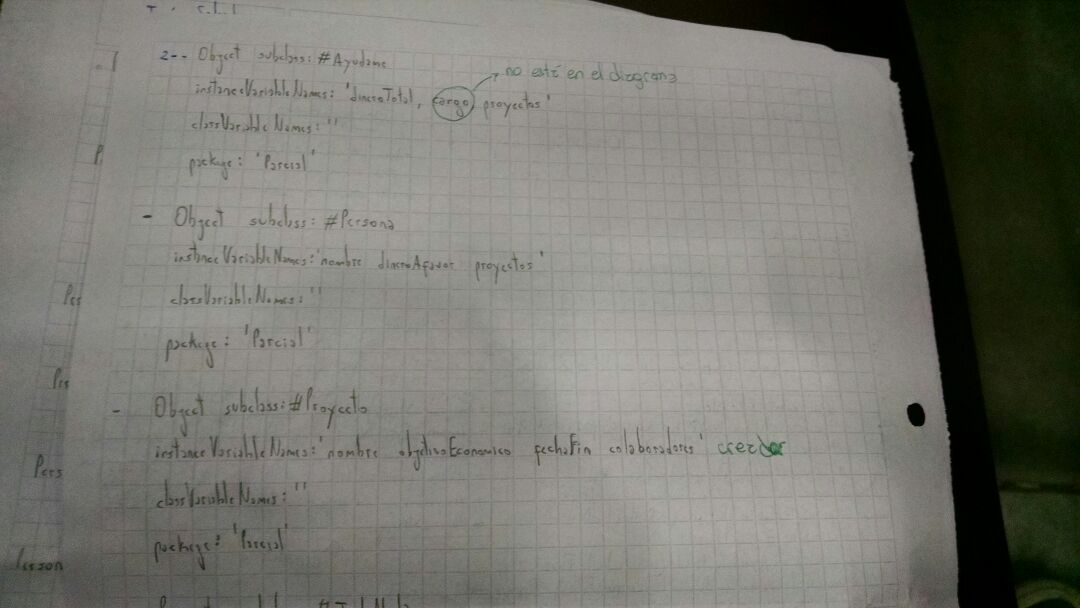 2-- Object subclass: #Ayudame
no está en el diagrama
instanceVariableNames: 'dineroTotal, cargo proyectos'
classVariableNames: ''
package: 'Parcial'
- Object subclass: #Persona
instanceVariableNames: 'nombre dineroAFavor proyectos'
classVariableNames: ''
package: 'Parcial'
- Object subclass: #Proyecto
instanceVariableNames: 'nombre objetivoEconomico fechaFin colaboradores' creador
classVariableNames: ''
package: 'Parcial'
Pers